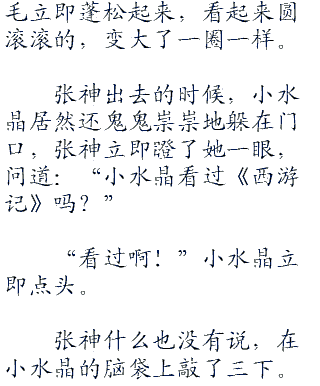 毛立即蓬松起来，看起来圆
滚滚的，变大了一圈一样。
张神出去的时候，小水
晶居然还鬼鬼祟祟地躲在门
口，张神立即瞪了她一眼，
问道：“小水晶看过《西游
记》吗？”
“看过啊！”小水晶立
即点头。
张神什么也没有说，在
小水晶的脑袋上敲了三下。